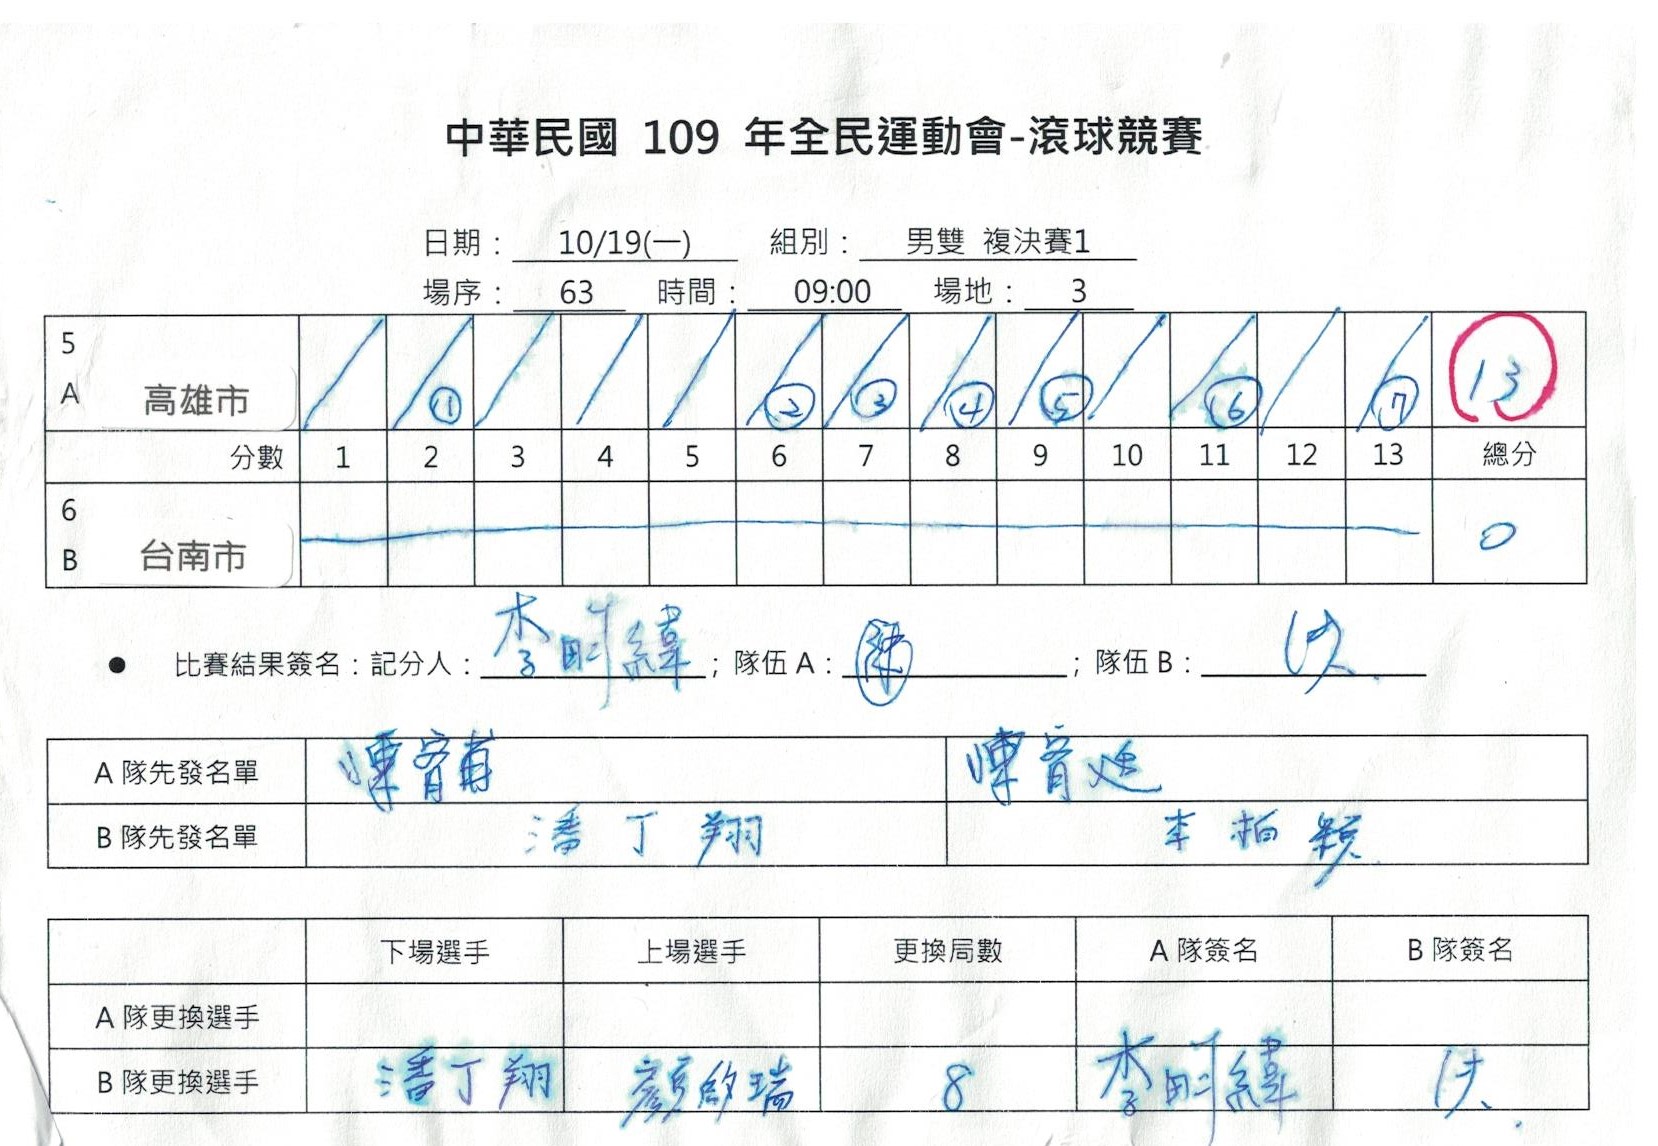 中華民國 109 年全民運動會-滾球競賽
日期： 10/19(一) 組別： 男雙 複決賽1
場序： 63 時間： 09:00 場地： 3
5
A 高雄市 ① ② ③ ④ ⑤ ⑥ ⑦ 13
分數 1 2 3 4 5 6 7 8 9 10 11 12 13 總分
6
B 台南市 0
● 比賽結果簽名：記分人： ；隊伍 A： 陳 ；隊伍 B：
A 隊先發名單 陳
B 隊先發名單 潘丁翔 李柏穎
下場選手 上場選手 更換局數 A 隊簽名 B 隊簽名
A 隊更換選手
B 隊更換選手 潘丁翔 顏啟瑞 8